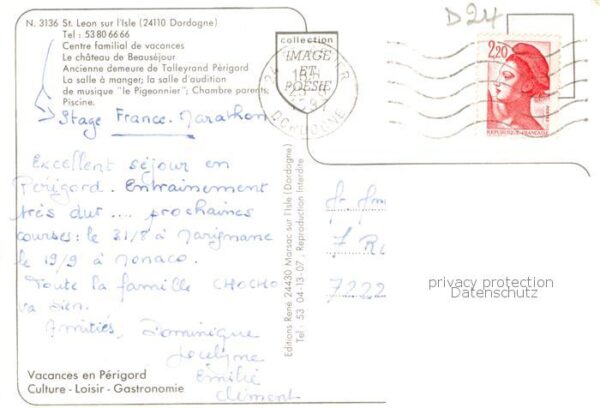 N. 3136 St. Leon sur l'Isle (24110 Dordogne)
Tel : 53 80 66 66
Centre familial de vacances
Le château de Beauséjour
Ancienne demeure de Talleyrand Périgord
La salle à manger; la salle d'audition
de musique "le Pigeonnier"; Chambre parents;
Piscine.
Stage France. Marathon
Excellent séjour en
Périgord. Entrainement
très dur .... prochaines
courses: le 31/8 à Marignane
le 19/9 à Monaco.
Toute la famille CHOCHO
va bien.
Amitiés, Dominique
Jocelyne
Emilie
Clément
Vacances en Périgord
Culture - Loisir - Gastronomie
Editions René 24430 Marsac sur l'Isle (Dordogne)
Tel : 53 04-13-07 . Reproduction Interdite
collection
IMAGE
ET
POÉSIE
DORDOGNE
D24
2,20
REPUBLIQUE FRANÇAISE
7222
privacy protection
Datenschutz